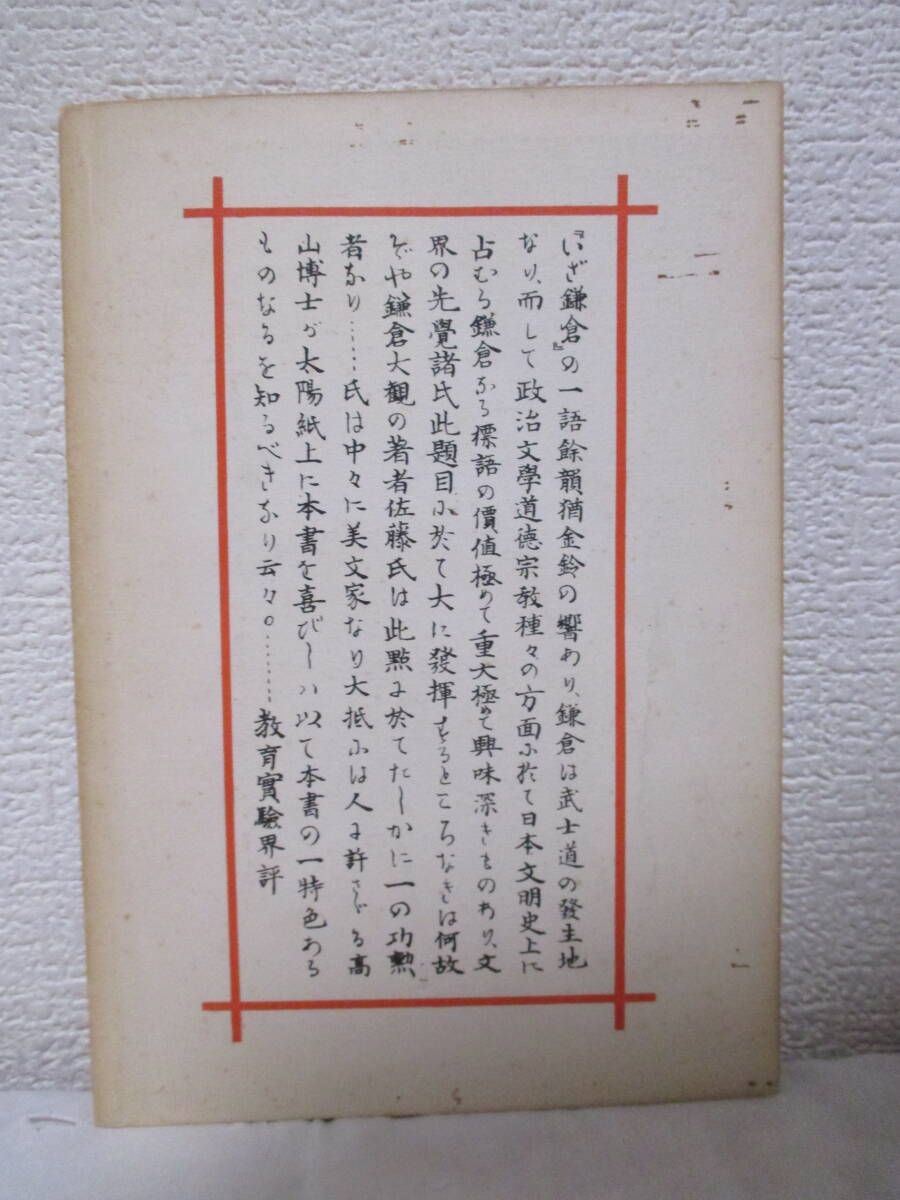 『いざ鎌倉』の一語餘韻猶金鈴の響あり、鎌倉は武士道の發生地
なり、而して政治文學道德宗教種々の方面に於て日本文明史上に
占むる鎌倉なる標語の價値極めて重大極めて興味深きものあり、文
界の先覺諸氏此題目に於て大に發揮するところなきは何故
ぞや鎌倉大観の著者佐藤氏は此點に於てたしかに一の功勲
者なり……氏は中々に美文家なり大抵には人に許さゞる高
山博士が太陽紙上に本書を喜びしハ以て本書の一特色ある
ものなるを知るべきなり云々。………教育實驗界評